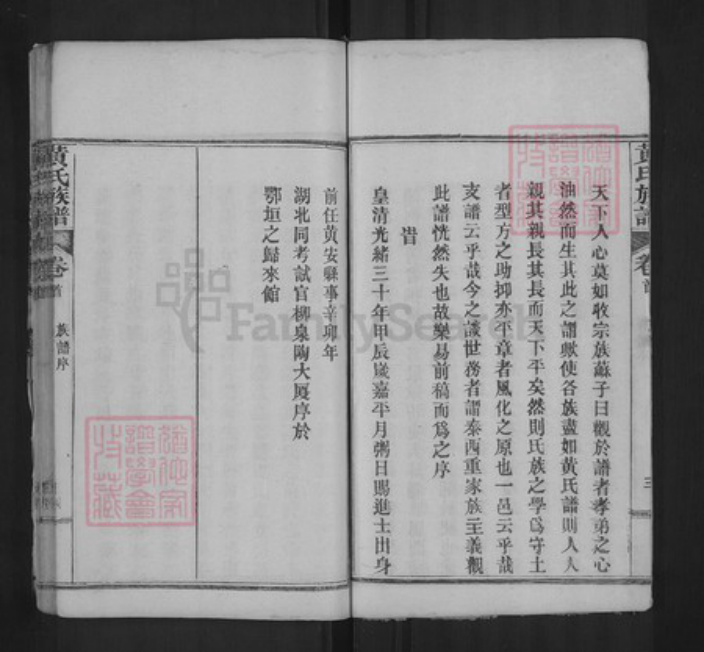 黃氏族譜
卷首
三
天下人心莫如收宗族蘇子曰觀於譜者孝弟之心
油然而生其此之謂歟使各族盡如黃氏譜則人人
親其親長其長而天下平矣然則氏族之學爲守土
者型方之助抑亦平章者風化之原也一邑云乎哉
支譜云乎哉今之談世務者謂泰西重家族主義觀
此譜恍然失也故樂易前稿而爲之序
旹
皇清光緒三十年甲辰嵗嘉平月粥日賜進士出身
前任黃安縣事辛卯年
湖北同考試官柳泉陶大夏序於
鄂垣之歸來館
黃氏族譜
卷首
族譜序
FamilySearch
譜學會
特藏
譜學會
特藏